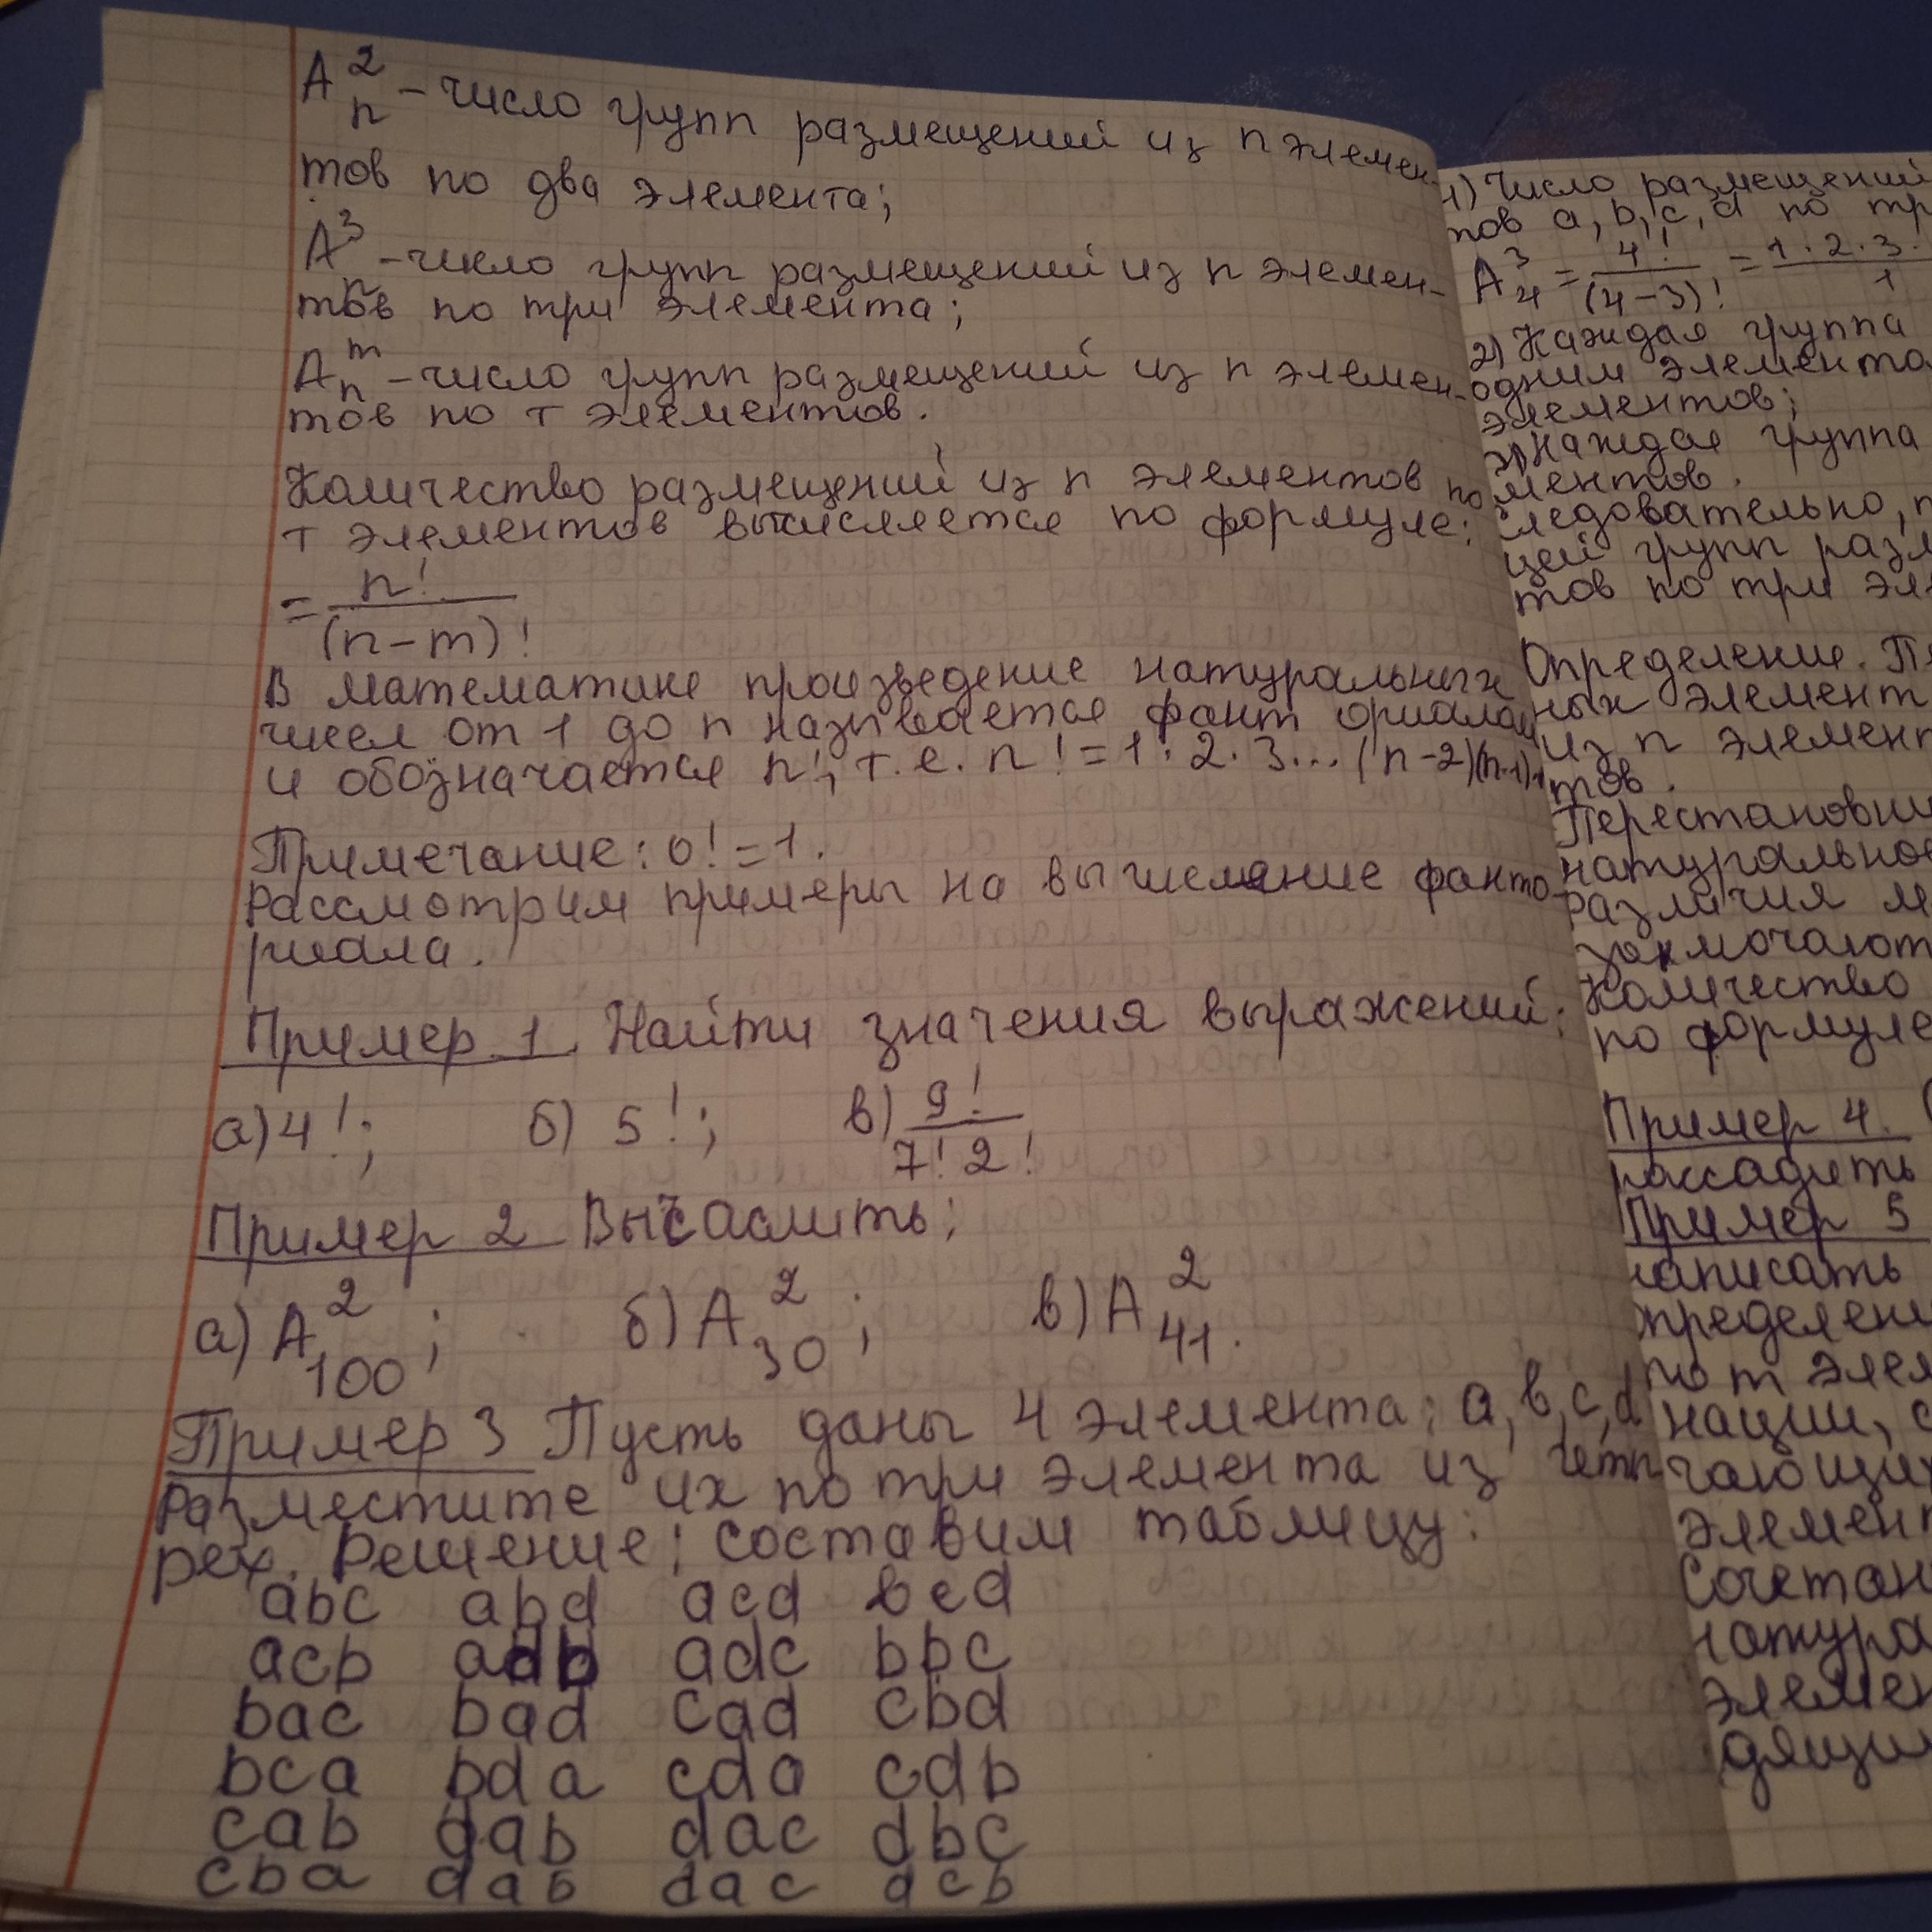 A²ₙ – число групп размещений из n элемен-
тов по два элемента;
A³ₙ – число групп размещений из n элемен-
тов по три элемента;
Aᵐₙ – число групп размещений из n элемен-
тов по т элементов.
Количество размещений из n элементов по
т элементов вычисляется по формуле:
= n! / (n – m)!
В математике произведение натуральных
чисел от 1 до n называется факториалом
и обозначается n!, т.е. n! = 1 · 2 · 3 ... (n-2)(n-1)
Примечание: 0! = 1.
Рассмотрим примеры на вычисляние факто-
риала.
Пример 1. Найти значения выражений:
а) 4!; б) 5!; в) 9! / 7! 2!
Пример 2
а) A²₁₀₀; б) A²₃₀; в) A²₄₁.
Пример 3 Пусть даны 4 элемента: a, b, c, d
Разместите их по три элемента из четы
рех. Решение: составим таблицу:
abc abd acd bcd
acb adb adc bbc
bac bad cad cbd
bca bda cda cdb
cab dab dac dbc
cba dab dac dcb
1) Число размещений
тов a, b, c, d по
A³₄ = 4! / (4-3)! = 1 · 2 · 3 · / 1
2) Каждая группа
одним
элементов;
3) Каждая группа
ментов.
Следовательно,
щей групп
тов по три
Определение.
ных
из n
тов.
натурально
различия
заключают
Количество
по формуле
Пример 4.
рассадить
Пример 5
написать
по m
нации,
чающих
дящи